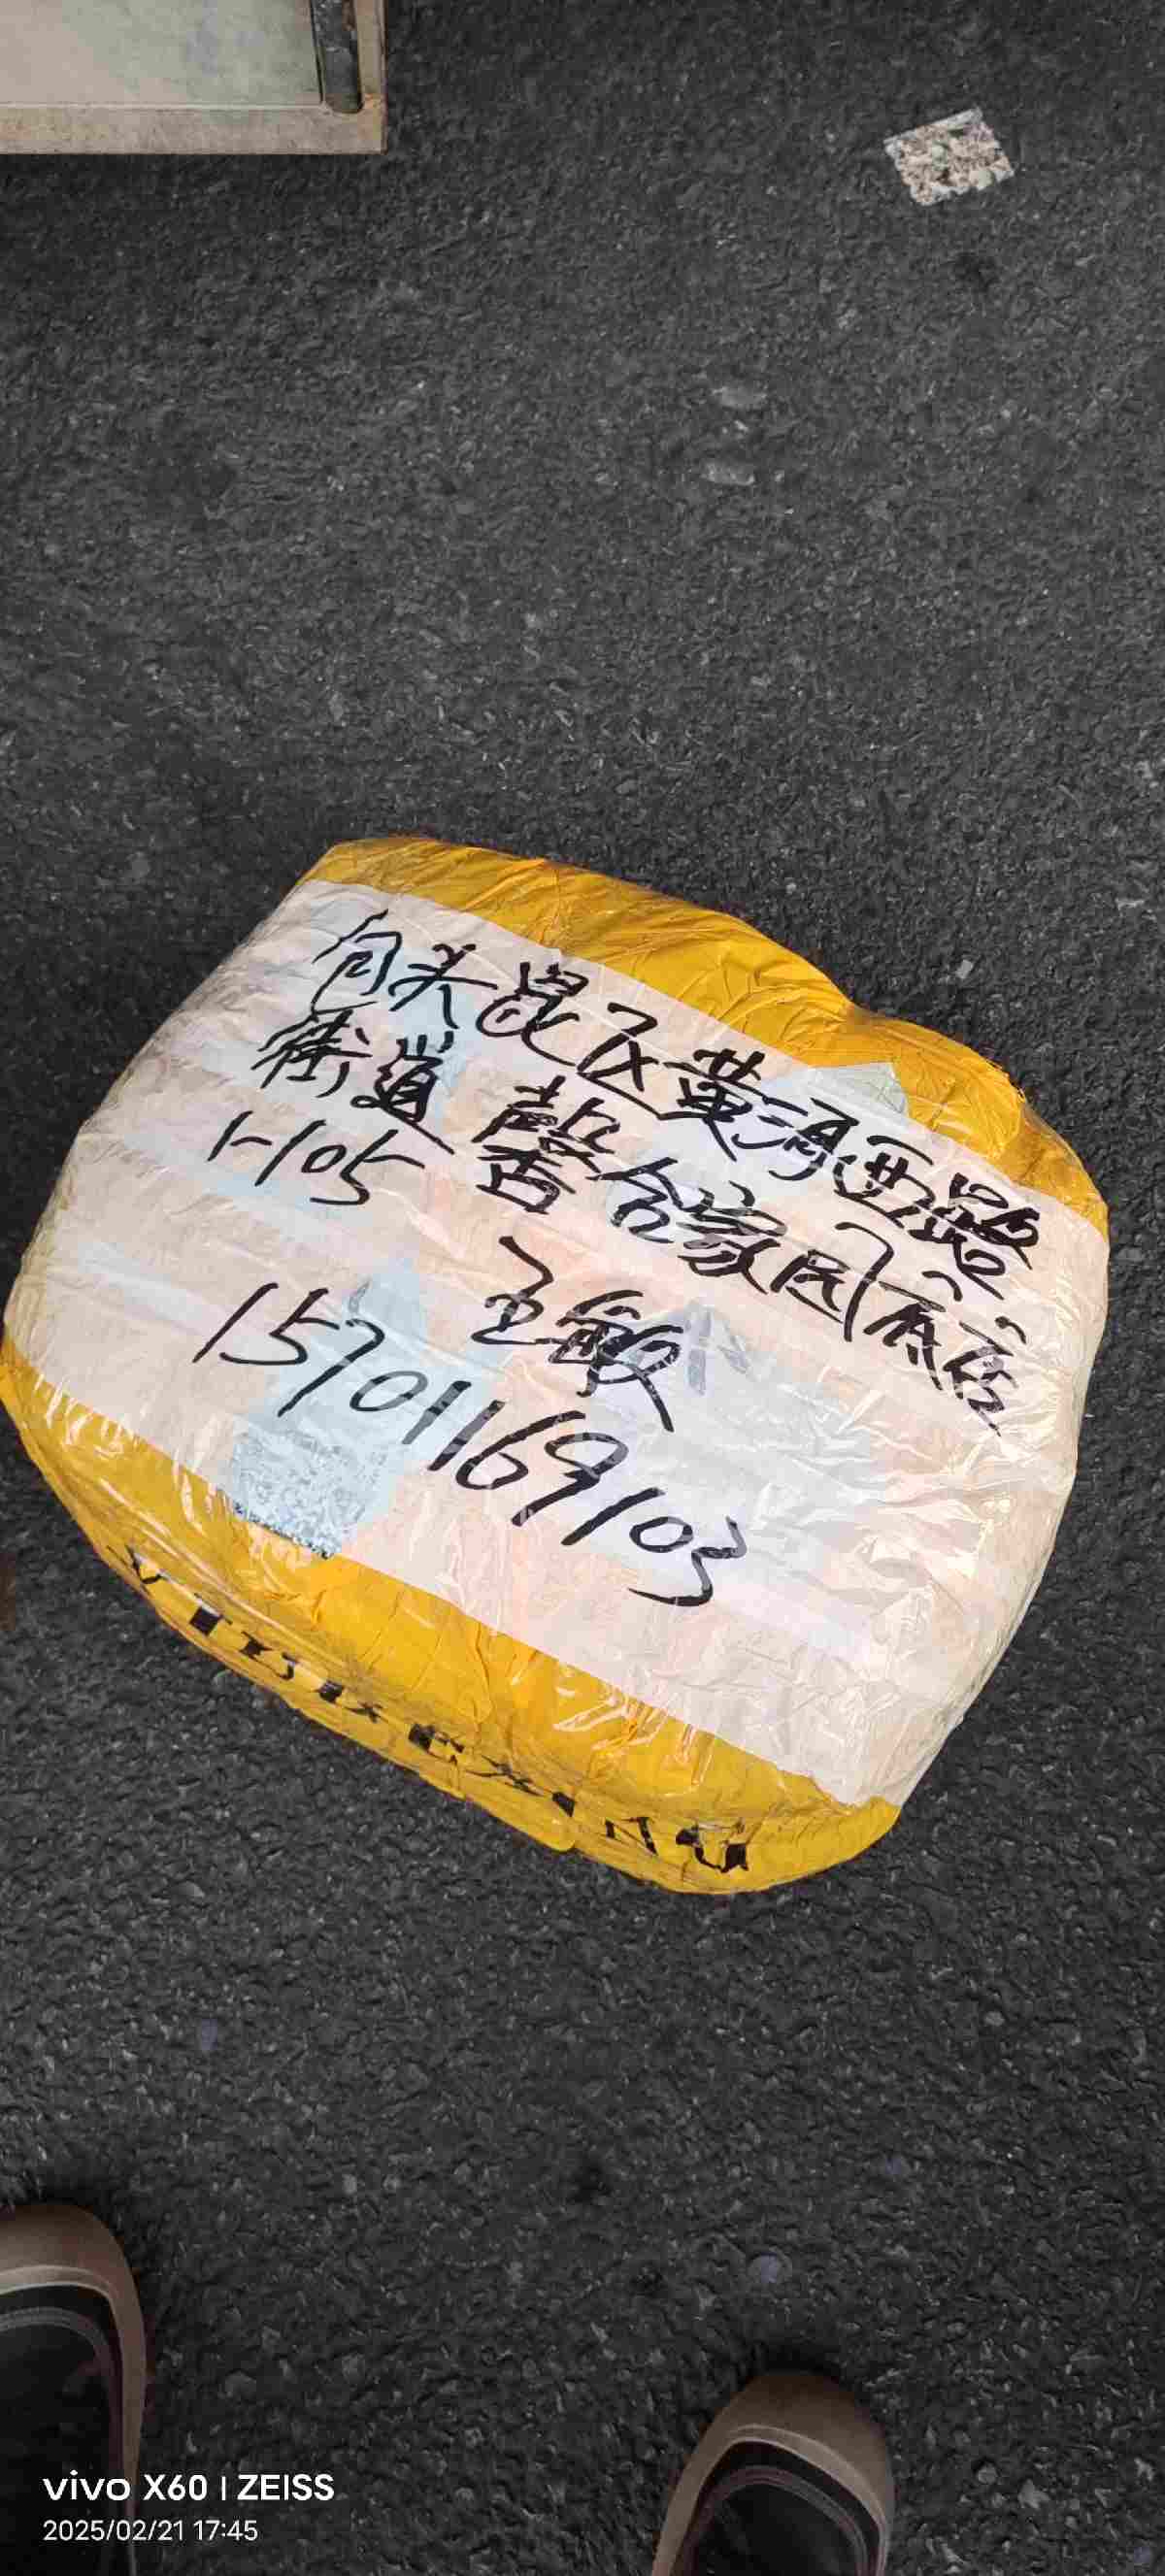 包头昆区黄河西路
街道馨合家园门商店
1-105
王敏
15701169103
vivo X60 | ZEISS
2025/02/21 17:45